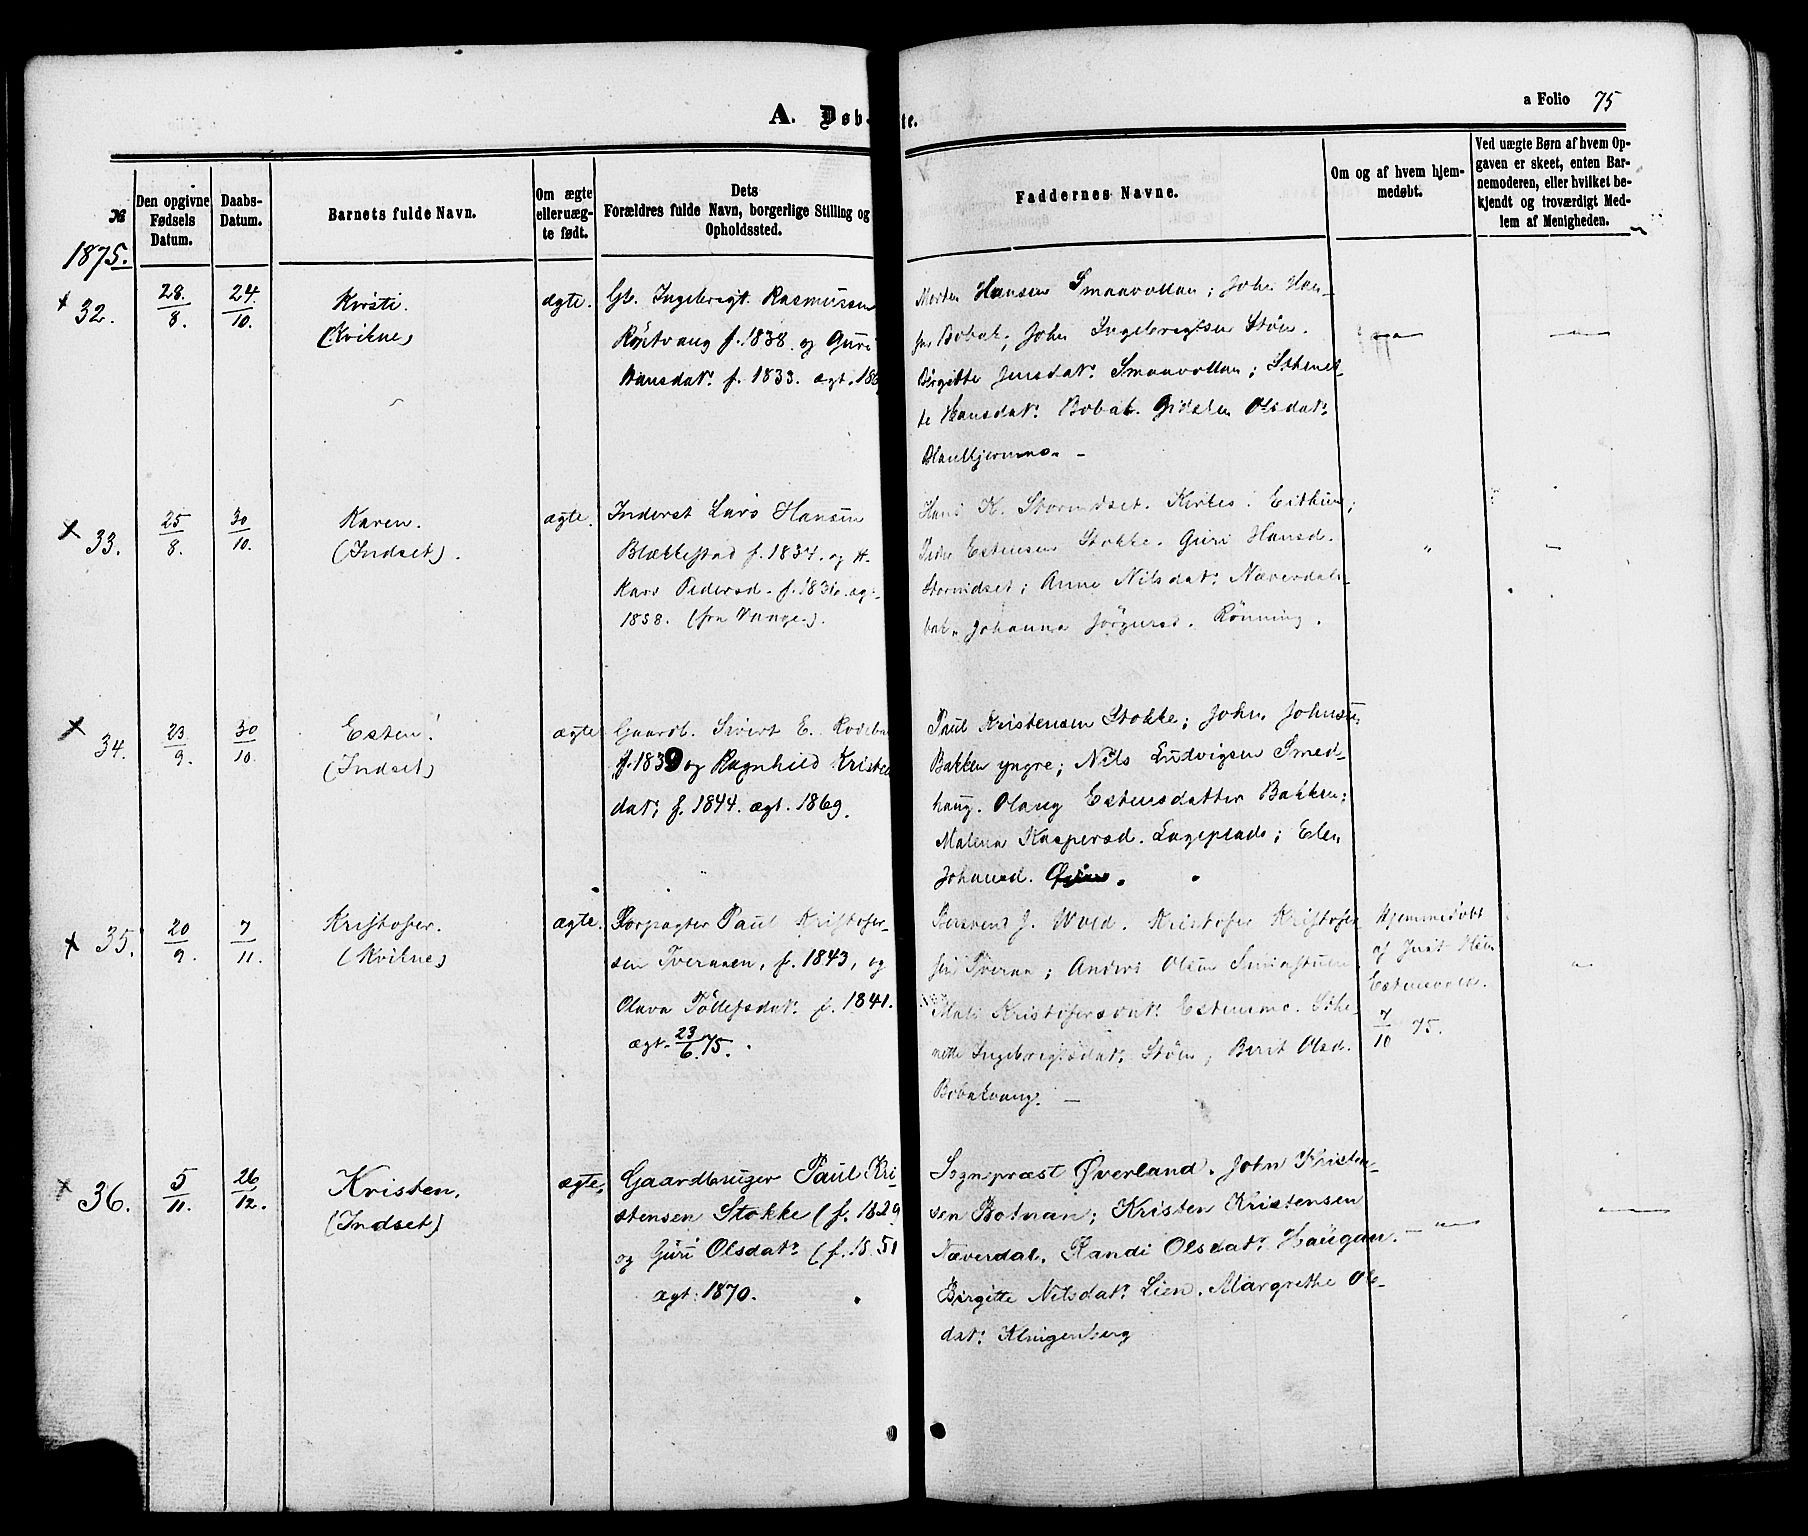 A. Døb
te.
a Folio 75
№
Den opgivne Fødsels Datum.
Daabs-Datum.
Barnets fulde Navn.
Om ægte eller uæg-te født.
Dets
Forældres fulde Navn, borgerlige Stilling og
Opholdssted.
Faddernes Navne.
Om og af hvem hjem-
medøbt.
Ved uægte Børn af hvem Op-
gaven er skeet, enten Bar-
nemoderen, eller hvilket be-
kjendt og troværdigt Med-
lem af Menigheden.
1875.
32.
28/8.
24/10.
Kirsti.
(Kvikne)
ægte.
Gb. Ingebrigt Rasmussen
Röstvang f. 1838. og Guri
Hansdatr f. 1833. ægt. 186
Morten Hansen Smaavollan; John Han-
sen Bobak; John Ingebrigtsen Stöen.
Birgitte Jensdatr Smaavollan; Sthenet-
te Hansdatr Bobak. Olsdatr
33.
25/8.
30/10.
Karen.
(Indset).
ægte.
Inderst Lars Hansen
Blækkestad f. 1834. og H.
Kari Pedersd. f. 1836. æg-
1858. (fra Vange).
Hans K. Storindset. Kirkes. Eithun;
Peder Estensen Stokke. Guri Hansd.
Storindset; Anne Nilsdatr Næverdal-
bak. Johanna Jörgensd. Rönning.
34.
23/9.
30/10
Esten.
(Indset)
ægte
Gaardb. Sivert E. Rodebak
f. 1839 og Ragnhild Kristen
datr f. 1844. ægt. 1869.
Paul Kristensen Stokke; John Johnsen
Bakken yngre; Nils Ludvigsen Smed-
haug. Olaug Estensdatter Bakken;
Malena Kaspersd. Lageplads; Elen
Johansd.
35.
20/9.
7/11.
Kristofer.
(Kvikne)
ægte.
Forpagter Paul Kristofer-
sen Tveraaen, f. 1843, og
Olava Tollefsdatr f. 1841.
ægt. 23/6 75.
J. Wold. Kristofer Kristofer
sen Tveraa; Anders Olsen
Mali Kristofersdatr Estensmo. Sthe-
nette Ingebrigtsdatr Stöen; Berit Olsd.
Bobakvang. –
Hjemmedøbt
af Jost
Estensvold.
7/10 75.
36.
5/11.
26/12.
Kristen.
(Indset)
ægte.
Gaardbruger Paul Kri-
stensen Stokke (f. 1829
og Guri Olsdatr (f. 1851
ægt. 1870.
Sognepræst Øverland. John Kristen-
sen Botnan; Kristen Kristensen
Næverdal. Randi Olsdatr Haugan.
Birgitte Nilsdatr Lien. Margrethe Ols-
datr Klingenberg